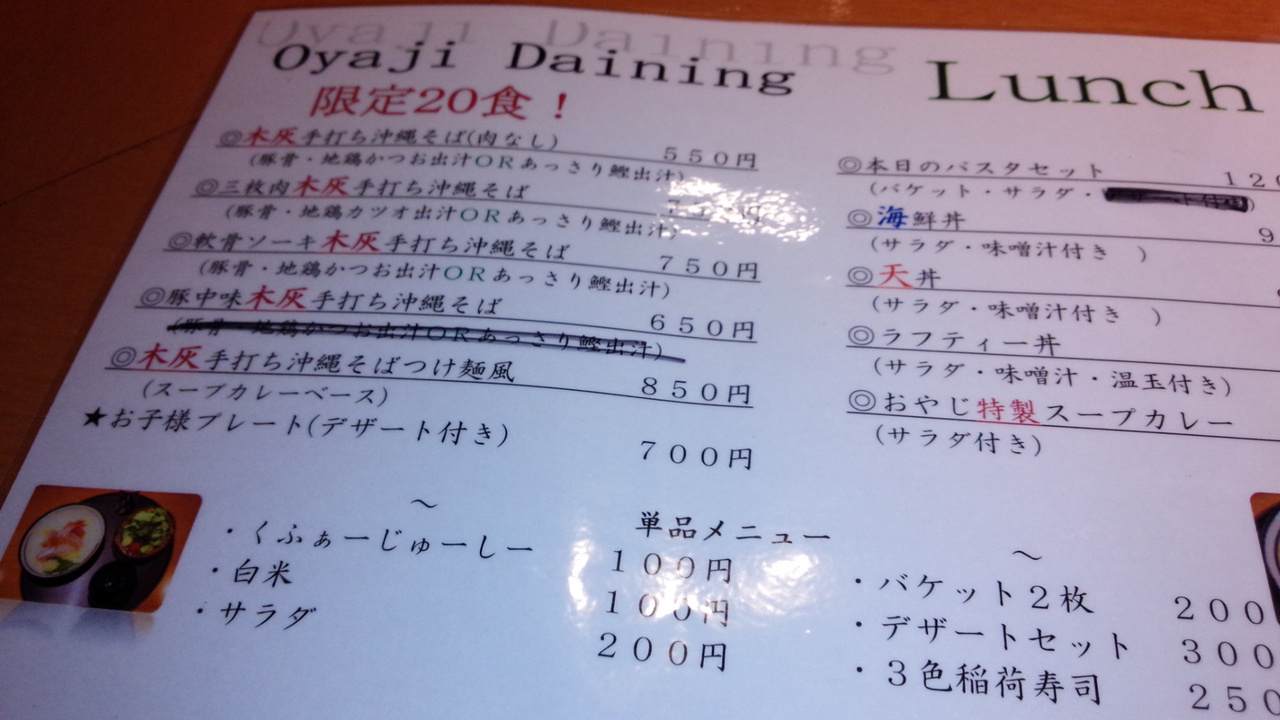 Oyaji Daining
Oyaji Daining
Lunch
限定20食！
◎木灰手打ち沖縄そば(肉なし) 550円
(豚骨・地鶏かつお出汁ORあっさり鰹出汁)
◎三枚肉木灰手打ち沖縄そば 円
(豚骨・地鶏カツオ出汁ORあっさり鰹出汁)
◎軟骨ソーキ木灰手打ち沖縄そば 750円
(豚骨・地鶏かつお出汁ORあっさり鰹出汁)
◎豚中味木灰手打ち沖縄そば 650円
(豚骨・地鶏かつお出汁ORあっさり鰹出汁)
◎木灰手打ち沖縄そばつけ麺風 850円
(スープカレーベース)
★お子様プレート(デザート付き) 700円
◎本日のパスタセット 12
(バケット・サラダ・ )
◎海鮮丼 9
(サラダ・味噌汁付き )
◎天丼
(サラダ・味噌汁付き )
◎ラフティー丼
(サラダ・味噌汁・温玉付き)
◎おやじ特製スープカレー
(サラダ付き)
～ 単品メニュー ～
・くふぁーじゅーしー 100円
・白米 100円
・サラダ 200円
・バケット２枚 200
・デザートセット 300
・３色稲荷寿司 250